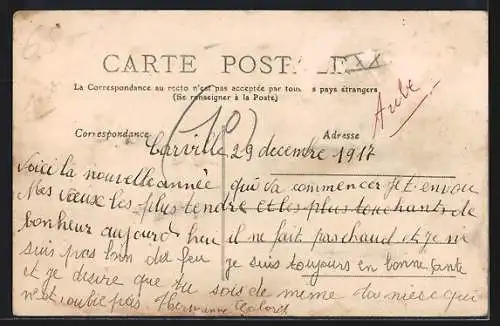 CARTE POSTALE
La Correspondance au recto n'est pas acceptée par tous les pays étrangers
(Se renseigner à la Poste)
Correspondance
Adresse
Aube
10
Carville 29 decembre 1917
Voici la nouvelle année qui va commencer je t envoie
Mes voeux les plus tendre et les plus touchants de
bonheur aujourd heu il ne fait pas chaud et je ne
suis pas loin du feu je suis toujours en bonne sante
et je desire que tu sois de meme ta niece qui
n est oublie pas Hermanne